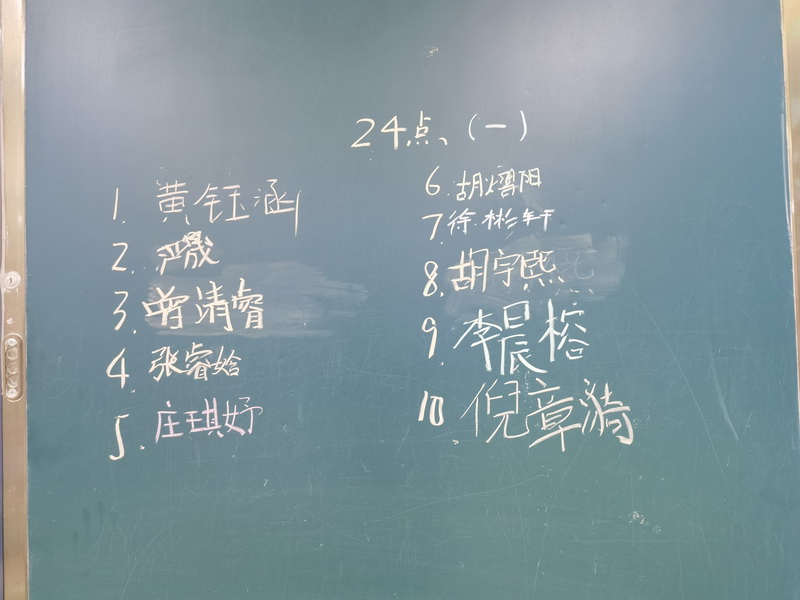 24点、（一）
1. 黄钰涵
2. 严晟
3. 曾清睿
4. 张睿姶
5. 庄琪妤
6. 胡熠阳
7. 徐彬轩
8. 胡宇熙
9. 李晨榕
10. 倪章漪